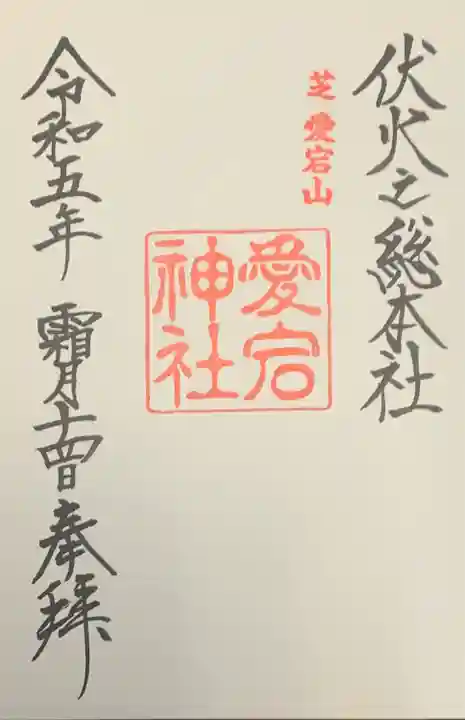 伏火之總本社
芝 愛宕山
愛宕
神社
令和五年 霜月十四日 奉拝